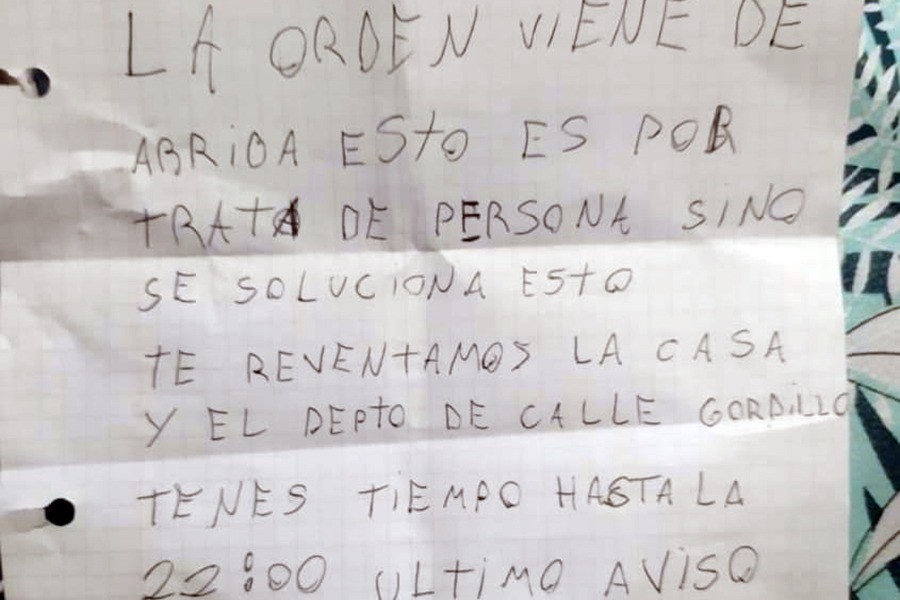 LA ORDEN VIENE DE
ARRIBA ESTO ES POR
TRATA DE PERSONA SINO
SE SOLUCIONA ESTO
TE REVENTAMOS LA CASA
Y EL DEPTO DE CALLE GORDILLO
TENES TIEMPO HASTA LA
22:00 ULTIMO AVISO